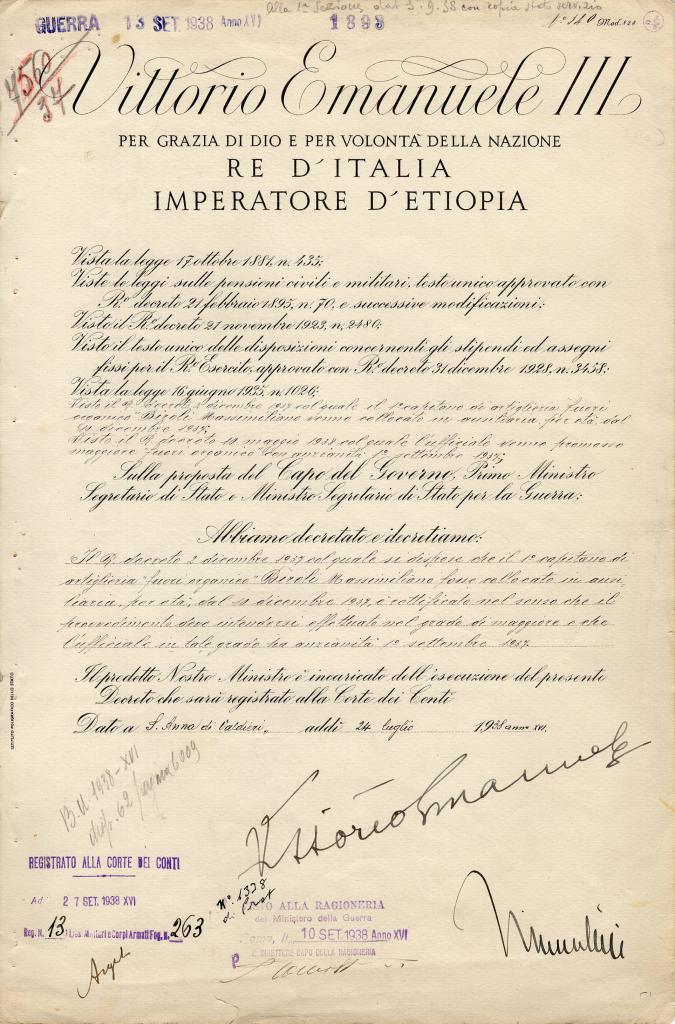 alla 1ª Sezione, dal 3.9.38 con copia stato servizio
GUERRA 13 SET. 1938 Anno XVI 1893 Mod. 120
Vittorio Emanuele III
PER GRAZIA DI DIO E PER VOLONTÀ DELLA NAZIONE
RE D'ITALIA
IMPERATORE D'ETIOPIA
Vista la legge 17 ottobre 1881, n. 435;
Viste le leggi sulle pensioni civili e militari, testo unico approvato con
R.º decreto 21 febbraio 1895, n. 70, e successive modificazioni;
Visto il R.º decreto 21 novembre 1923, n. 2480;
Visto il testo unico delle disposizioni concernenti gli stipendi ed assegni
fissi per il R.º Esercito, approvato con R.º decreto 31 dicembre 1928, n. 3458;
Vista la legge 16 giugno 1935, n. 1026;
Visto il R. decreto 2 dicembre 1937 col quale il 1º capitano di artiglieria "fuori
organico" Biroli Massimiliano venne collocato in ausiliaria, per età, dal
dicembre 1937;
Visto il R. decreto 10 maggio 1938 col quale l'ufficiale venne promosso
maggiore "fuori organico" con anzianità 1º settembre 1937;
Sulla proposta del Capo del Governo, Primo Ministro
Segretario di Stato e Ministro Segretario di Stato per la Guerra;
Abbiamo decretato e decretiamo:
Il R. decreto 2 dicembre 1937 col quale si dispose che il 1º capitano di
artiglieria "fuori organico" Biroli Massimiliano fosse collocato in ausi,
liaria, per età, dal dicembre 1937, è rettificato nel senso che il
provvedimento deve intendersi effettuato nel grado di maggiore e che
l'ufficiale in tale grado ha anzianità 1º settembre 1937.
Il predetto Nostro Ministro è incaricato dell'esecuzione del presente
Decreto che sarà registrato alla Corte dei Conti
Dato a S. Anna di Valdieri, addì 24 luglio 1938 anno XVI.
B.U. 1938-XVI
disp. 62 pagina 6009
Vittorio Emanuele
REGISTRATO ALLA CORTE DEI CONTI
Addì 27 SET. 1938 XVI
Reg. N. 13 Militari e Corpi Armati Fog. N. 263
Nº. 1378
ALLA RAGIONERIA
del Ministero della Guerra
Roma, lì 10 SET. 1938 Anno XVI
P. IL DIRETTORE CAPO DELLA RAGIONERIA
Mussolini
ISTITUTO POLIGRAFICO DELLO STATO